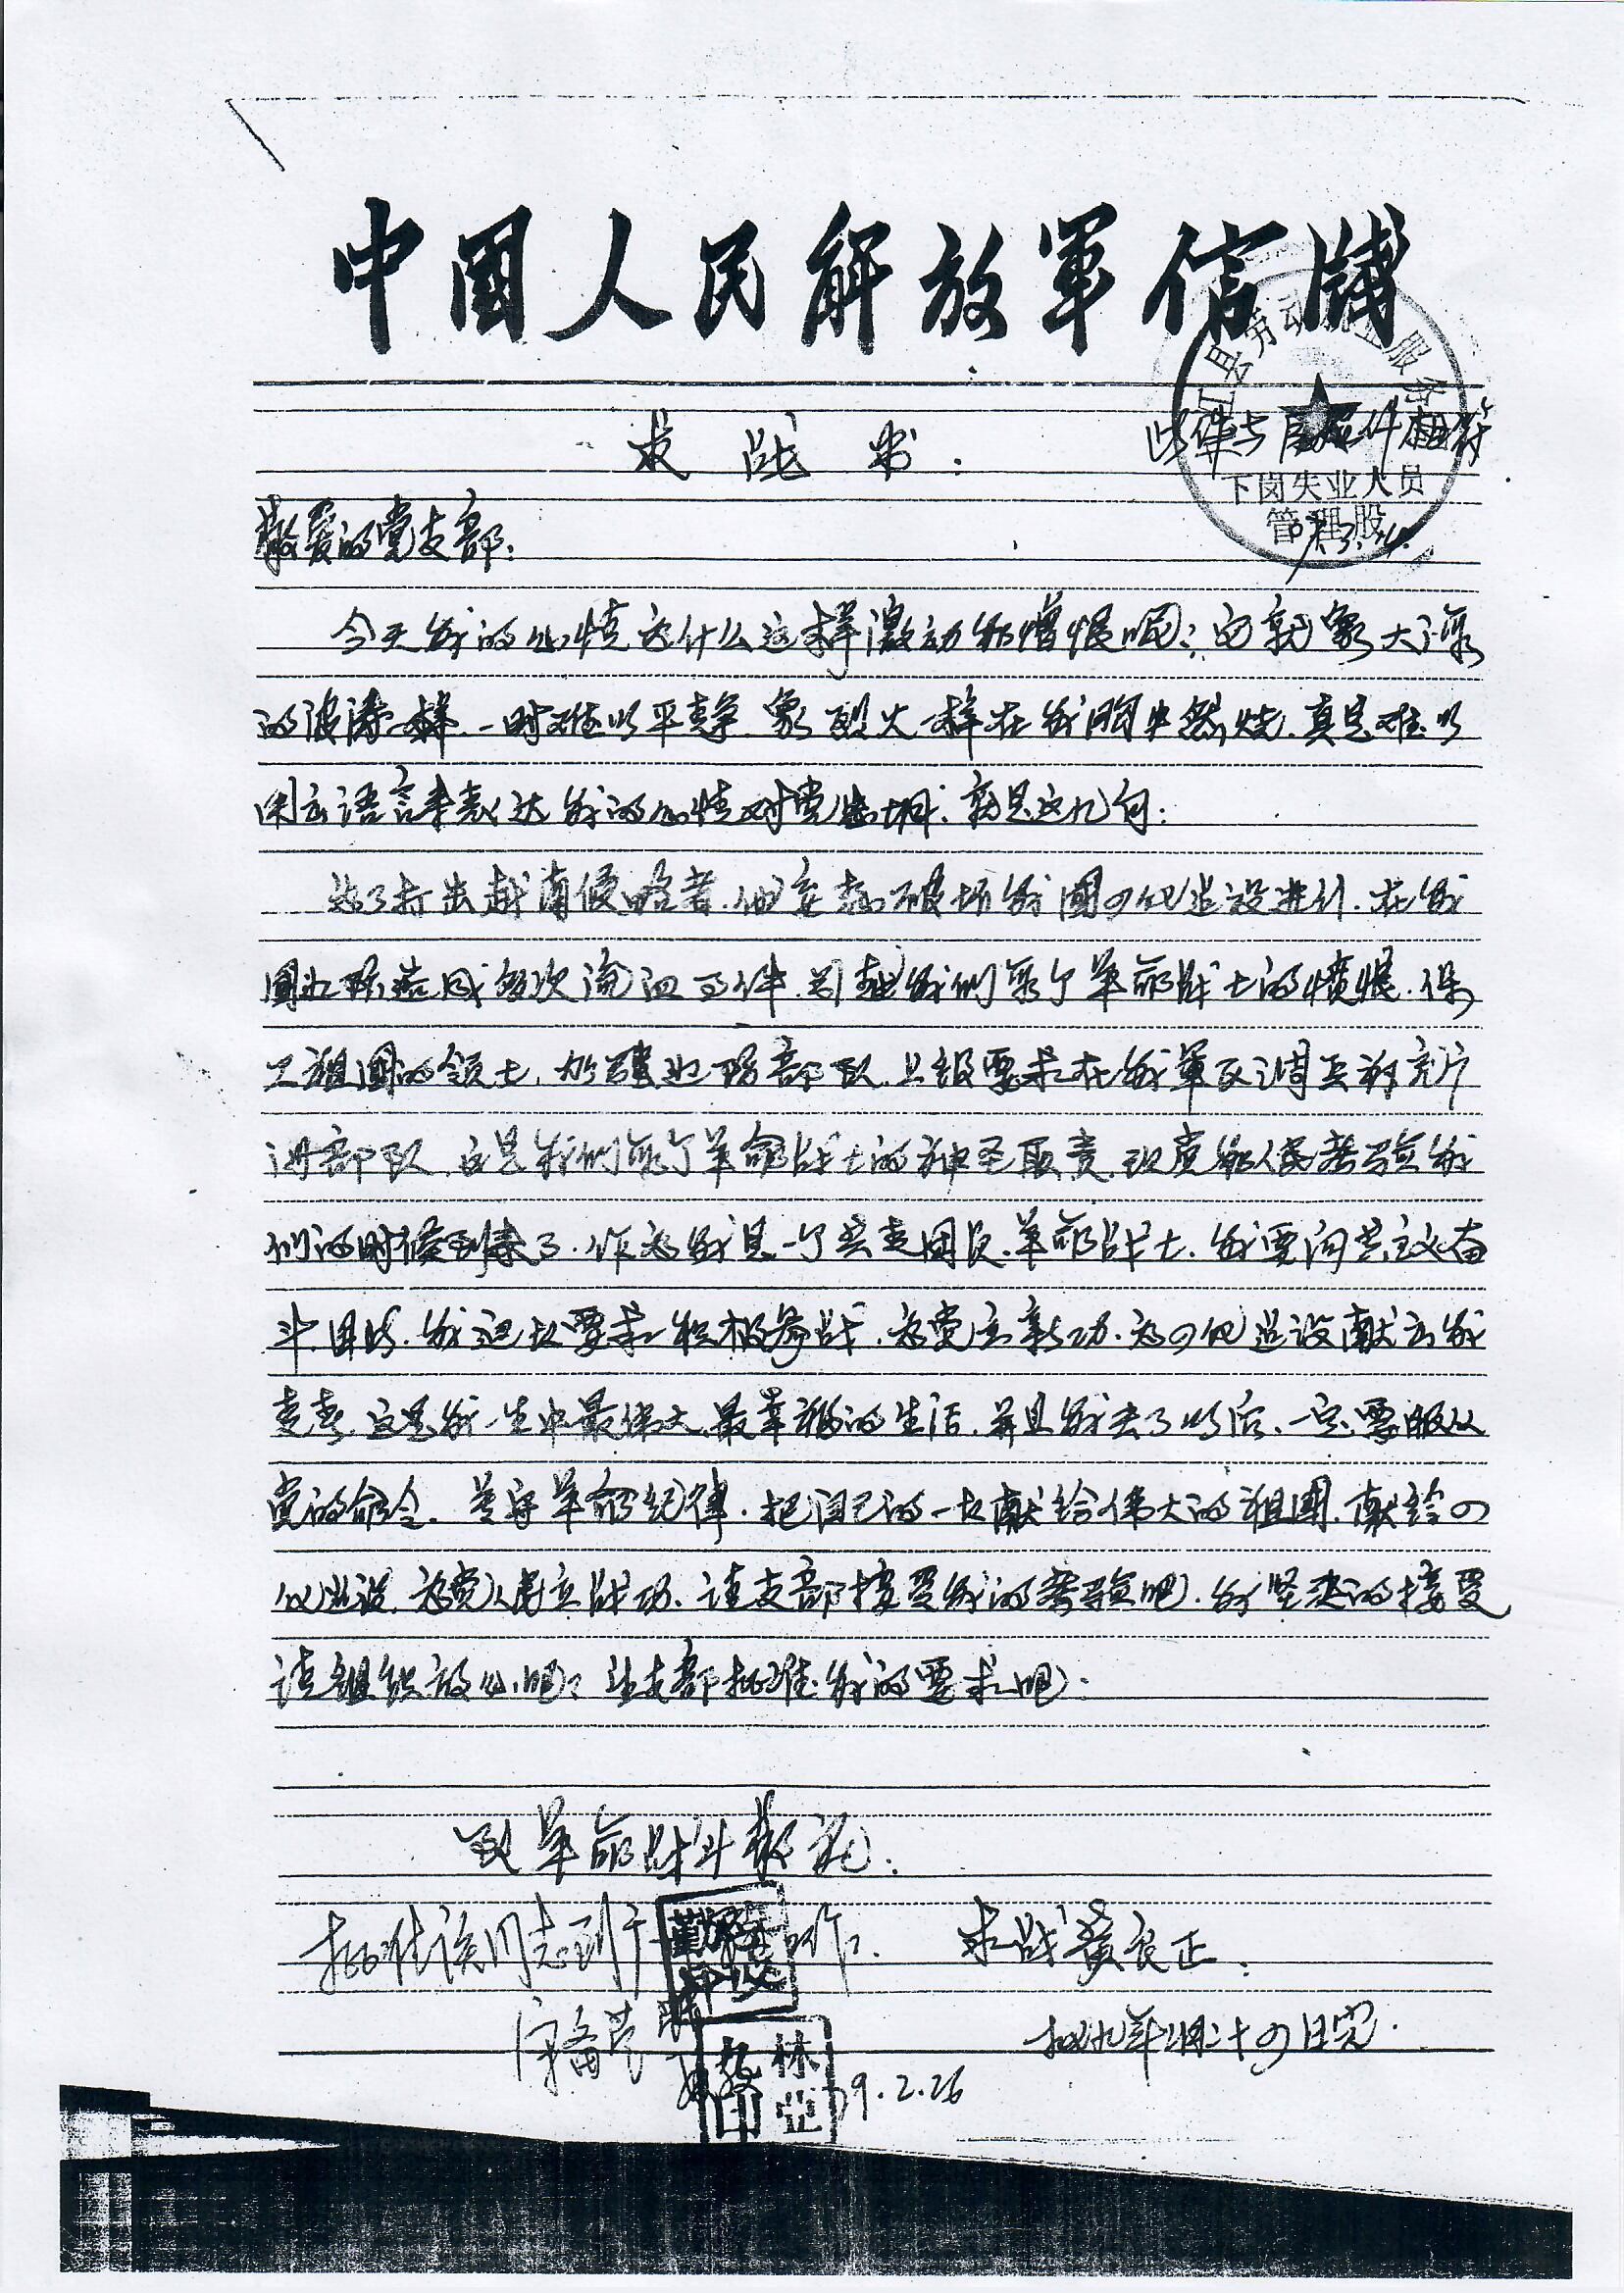 中國人民解放軍信牋
求战书.
此件与原件相符
下岗失业人员
管理股
敬爱的党支部:
今天我的心情为什么这样激动和憎恨呢？它就象大海
的波涛一样.一时难以平静.象烈火一样在我胸中燃烧.真是难以
用语言来表达我的心情对党感情.就是这几句:
为了打击越南侵略者.他妄想破坏我国四化建设进行.在我
国边际造成多次流血事件.引起我们每个革命战士的愤恨.保
卫祖国的领土.加强边防部队.上级要求在我军区调兵前充
进部队.这是我们每个革命战士的神圣职责.现党和人民考验我
们的时候到来了.作为我是一个共青团员.革命战士.我要向共主义奋
斗目的.我迫切要求积极参战.为党立新功.为四化建设献出我
青春.这是我一生中最伟大.最幸福的生活.并且我去了以后.一定要服从
党的命令.遵守革命纪律.把自己的一切献给伟大的祖国.献给四
化建设.为党人民立战功.请支部接受我的考验吧.我坚决的接受
请组织放心吧？让支部批准我的要求吧.
致革命战斗敬礼.
批准该同志到 工作.
求战黄良正.
林
印
79.2.26